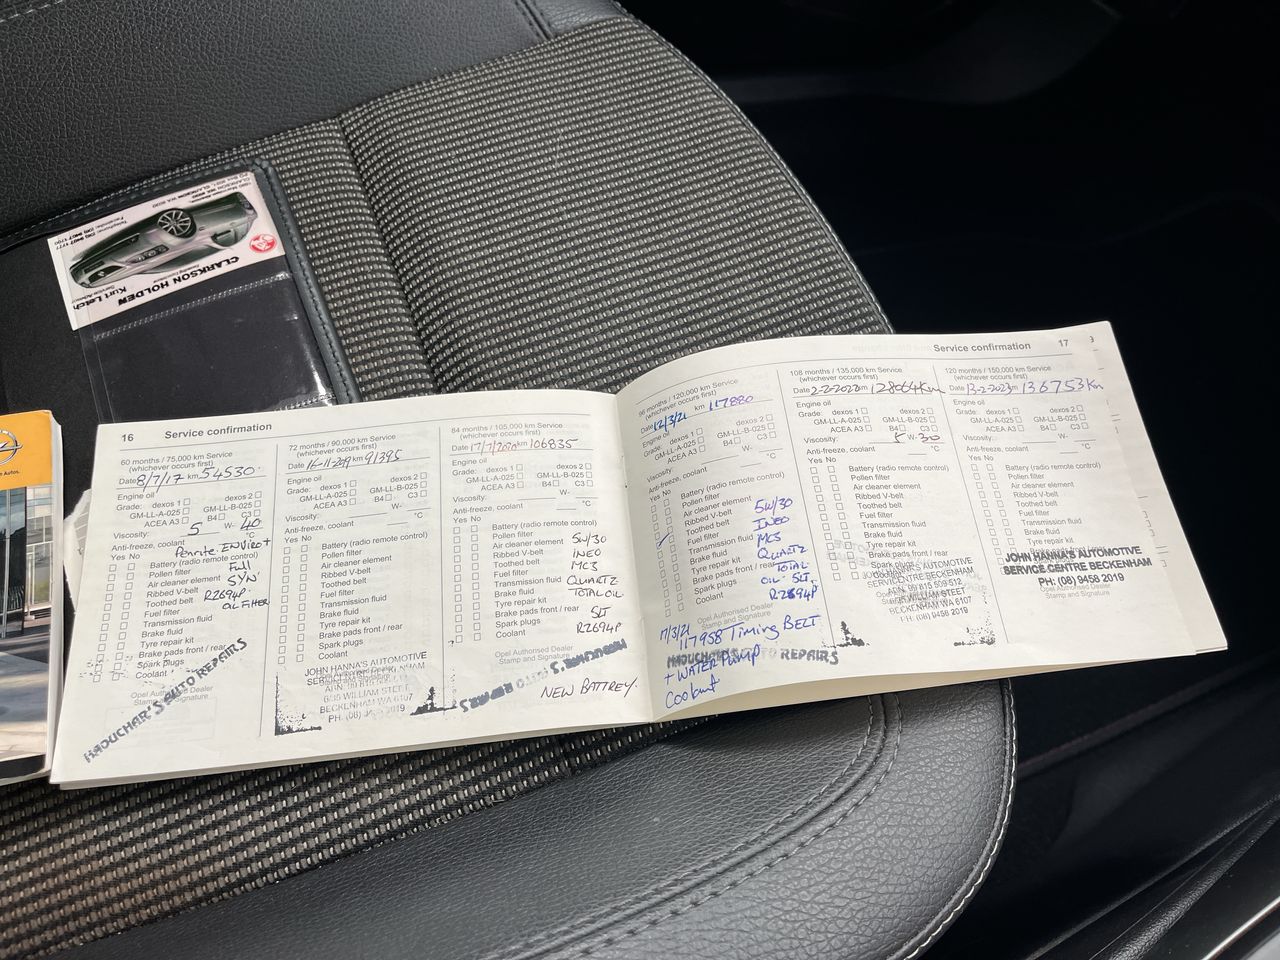 CLARKSON HOLDEN
Kurt Letch
Service Advisor
Telephone: (08) 9407 1777
16 Service confirmation
60 months / 75,000 km Service
(whichever occurs first)
Date 8/7/17 km 54530
Engine oil
dexos 1 dexos 2
GM-LL-A-025 GM-LL-B-025
ACEA A3 B4 C3
Viscosity: 5 W- 40
Anti-freeze, coolant °C
Penrite ENVIRO+
Yes No
Battery (radio remote control)
Full
Pollen filter
Air cleaner element SYN
Ribbed V-belt
Toothed belt R2694P
Fuel filter OIL FILTER
Transmission fluid
Brake fluid
Tyre repair kit
Brake pads front / rear
Spark plugs
Coolant
Opel Authorised Dealer
Stamp and Signature
MADUCHAR'S AUTO REPAIRS
72 months / 90,000 km Service
(whichever occurs first)
Date 16-11-2019 km 91395
Engine oil
Grade: dexos 1 dexos 2
GM-LL-A-025 GM-LL-B-025
ACEA A3 B4 C3
Viscosity: W-
Anti-freeze, coolant °C
Yes No
Battery (radio remote control)
Pollen filter
Air cleaner element
Ribbed V-belt
Toothed belt
Fuel filter
Transmission fluid
Brake fluid
Tyre repair kit
Brake pads front / rear
Spark plugs
Coolant
JOHN HANNA'S AUTOMOTIVE
BECKENHAM WA 6107
84 months / 105,000 km Service
(whichever occurs first)
Date 17/7/2020 km 106835
Engine oil
Grade: dexos 1 dexos 2
GM-LL-A-025 GM-LL-B-025
ACEA A3 B4 C3
Viscosity: W-
Anti-freeze, coolant °C
Yes No
Battery (radio remote control)
Pollen filter 5W/30
Air cleaner element INEO
Ribbed V-belt MC3
Fuel filter
Transmission fluid QUARTZ
Brake fluid TOTAL OIL
Tyre repair kit
Brake pads front / rear 5LT
Spark plugs
Coolant R2694P
Opel Authorised Dealer
Stamp and Signature
MADUCHAR'S AUTO REPAIRS
NEW BATTREY.
Service confirmation 17
96 months / 120,000 km Service
(whichever occurs first)
Date 12/3/21 km 117880
Engine oil
Grade: dexos 1 dexos 2
GM-LL-A-025 GM-LL-B-025
ACEA A3 B4 C3
Viscosity: W-
Anti-freeze, coolant °C
Yes No
Battery (radio remote control)
Pollen filter
Air cleaner element 5W/30
Ribbed V-belt
Toothed belt INEO
Fuel filter
Transmission fluid MC3
Brake fluid QUARTZ
Tyre repair kit
Brake pads front / rear TOTAL
Spark plugs OIL. 5LT.
Coolant R2694P
Opel Authorised Dealer
Stamp and Signature
17/3/21 117958 Timing BELT
MADUCHAR'S AUTO REPAIRS
+ WATER Pump
Coolant
108 months / 135,000 km Service
(whichever occurs first)
Date 2-2-2022 km 128064 Km
Engine oil
Grade: dexos 1 dexos 2
GM-LL-A-025 GM-LL-B-025
ACEA A3 B4 C3
Viscosity: 5 W- 30
Anti-freeze, coolant °C
Yes No
Battery (radio remote control)
Pollen filter
Air cleaner element
Ribbed V-belt
Toothed belt
Fuel filter
Transmission fluid
Brake fluid
Tyre repair kit
Brake pads front / rear
Spark plugs
JOHN HANNA'S AUTOMOTIVE
SERVICE CENTRE BECKENHAM
WILLIAM STREET
BECKENHAM WA 6107
PH: (08) 9458 2019
120 months / 150,000 km Service
(whichever occurs first)
Date 13-2-2023 km 136753 Km
Engine oil
Grade: dexos 1 dexos 2
GM-LL-A-025 GM-LL-B-025
ACEA A3 B4 C3
Viscosity: W-
Anti-freeze, coolant °C
Yes No
Battery (radio remote control)
Pollen filter
Air cleaner element
Ribbed V-belt
Toothed belt
Fuel filter
Transmission fluid
Brake fluid
Tyre repair kit
Brake pads front / rear
JOHN HANNA'S AUTOMOTIVE
SERVICE CENTRE BECKENHAM
PH: (08) 9458 2019
Opel Authorised Dealer
Stamp and Signature